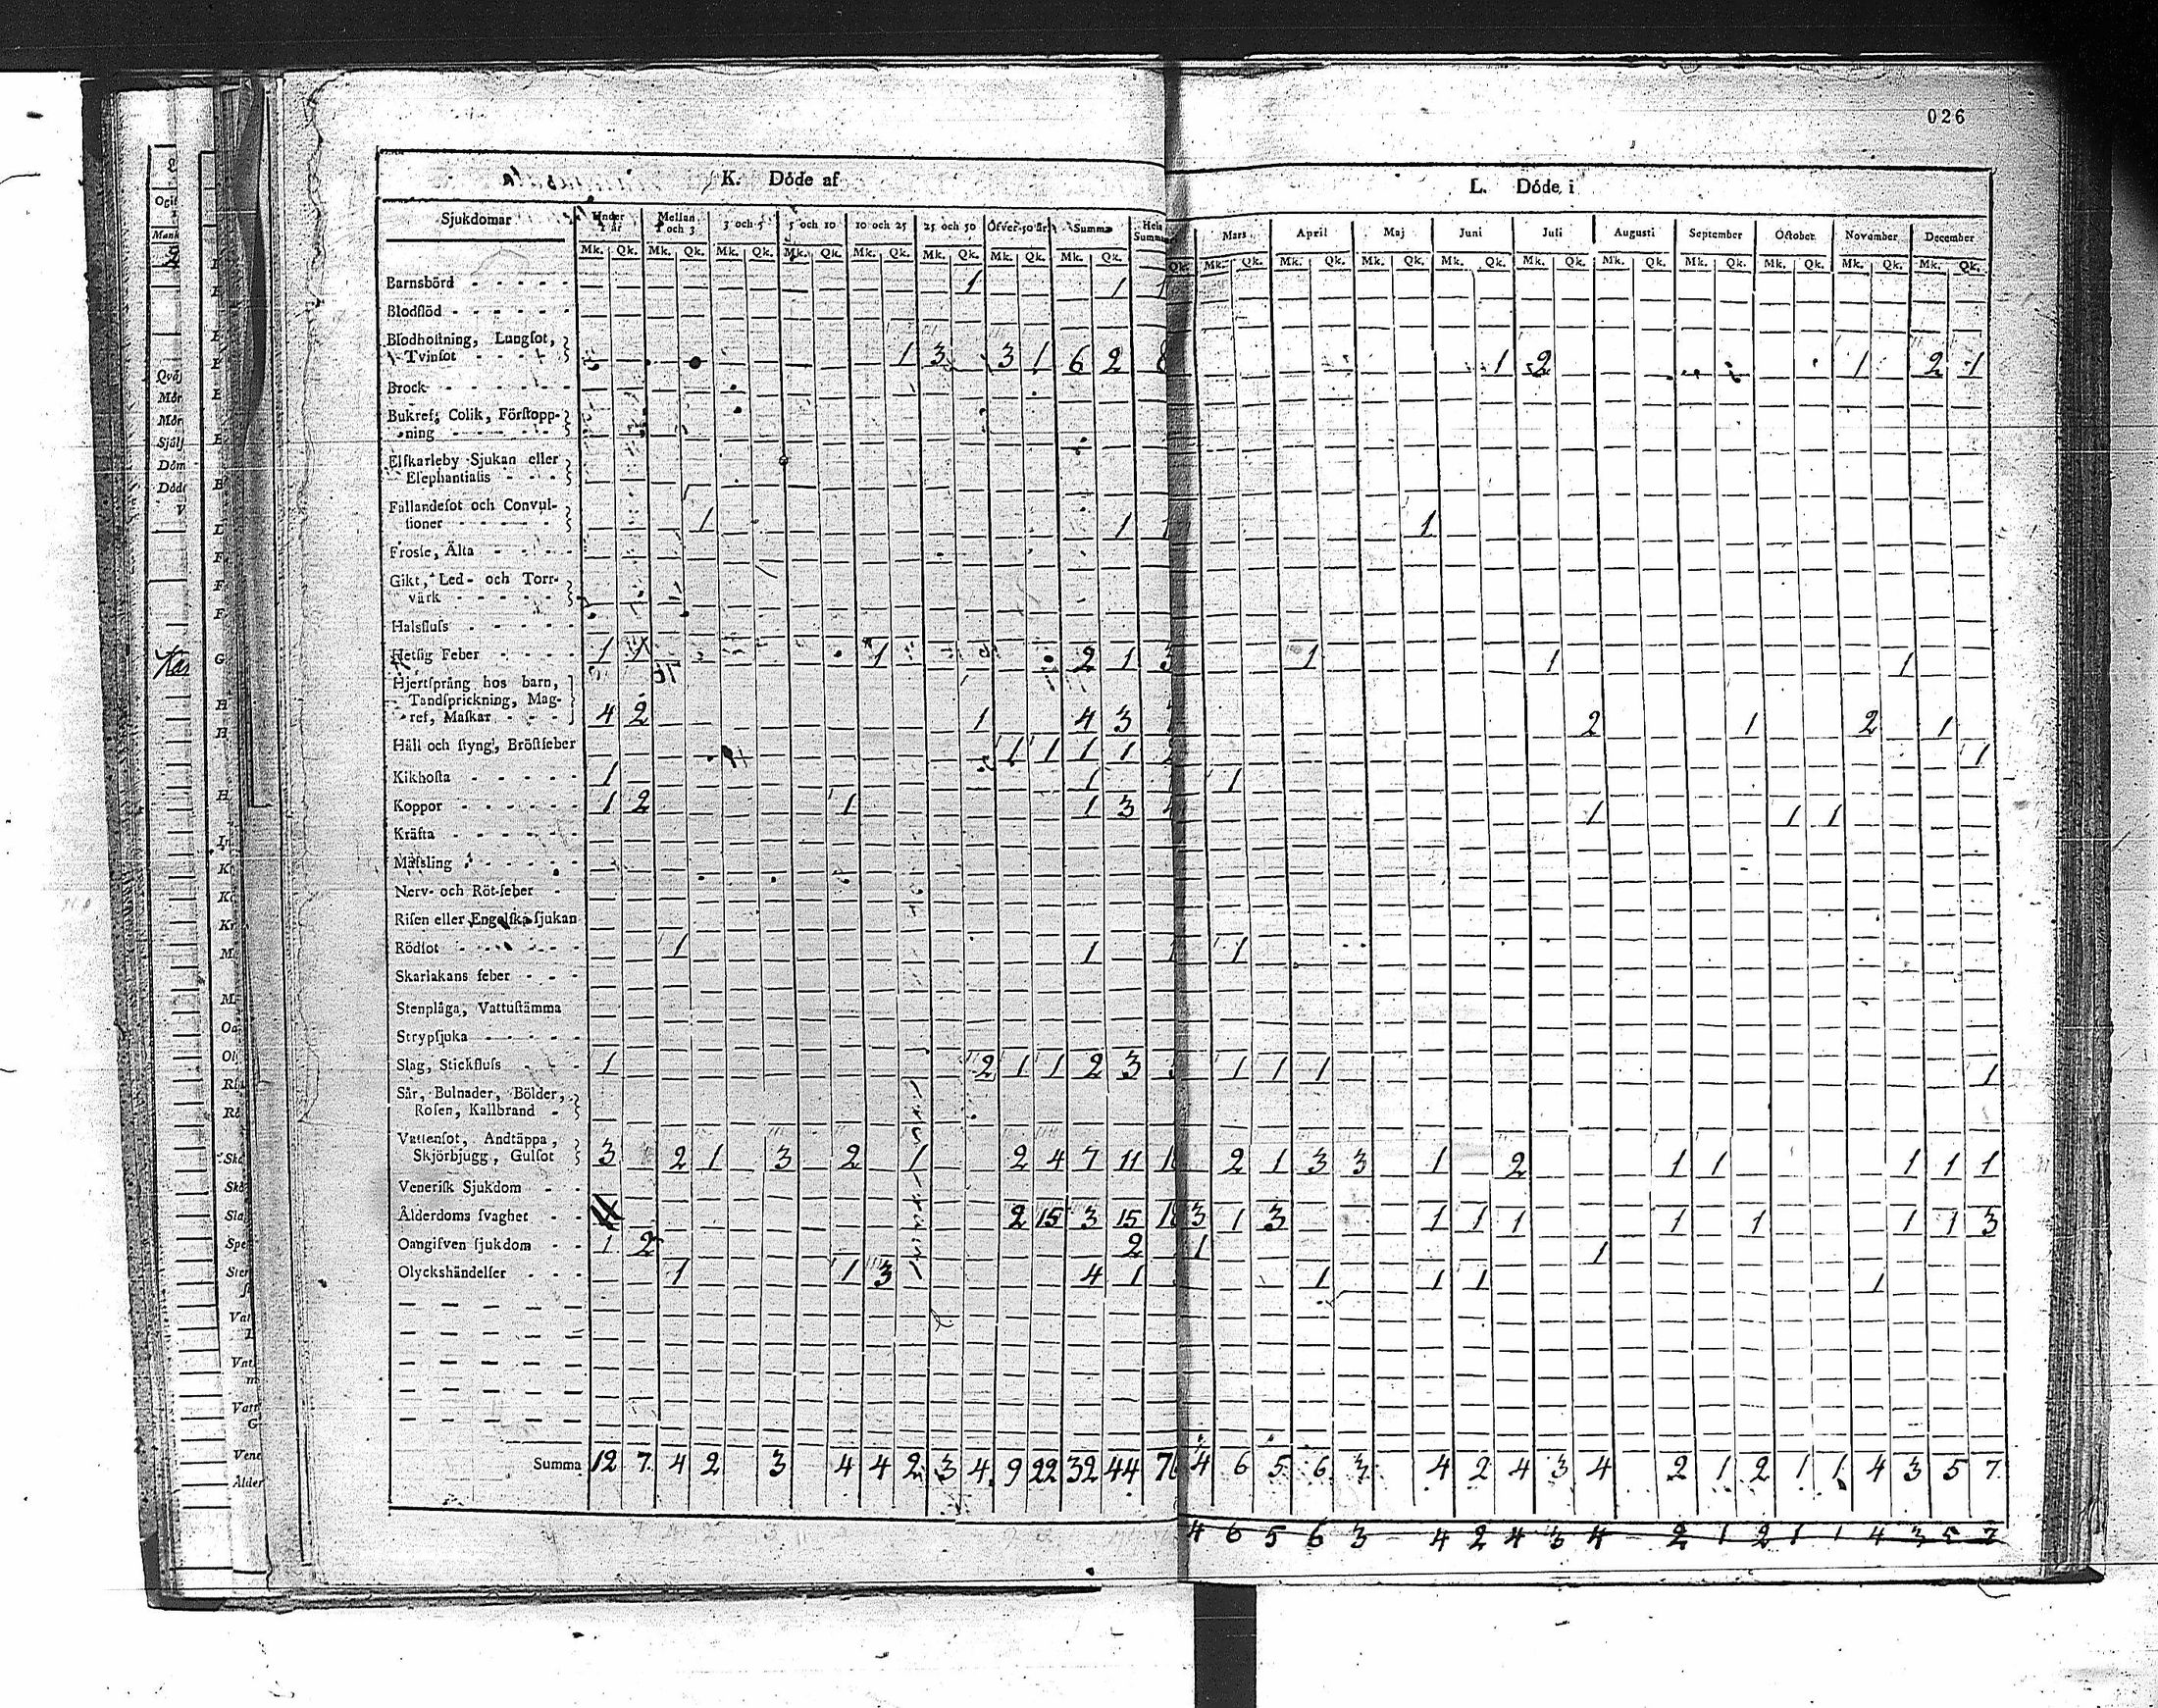 026
K. Döde af
L. Döde i
Sjukdomar Under 1 år Mellan 1 och 3 3 och 5 5 och 10 10 och 25 25 och 50 Öfver 50 år Summa Hela Summan
Mars April Maj Juni Juli Augusti September October November December
Mk. Qk. Mk. Qk. Mk. Qk. Mk. Qk. Mk. Qk. Mk. Qk. Mk. Qk. Mk. Qk.
Qk. Mk. Qk. Mk. Qk. Mk. Qk. Mk. Qk. Mk. Qk. Mk. Qk. Mk. Qk. Mk. Qk. Mk. Qk. Mk. Qk.
Barnsbörd 1 1 1
Blodflöd
Blodhoſtning, Lungſot,
Tvinſot 1 3 3 1 6 2 8 1 2 1 2 1
Brock
Bukref, Colik, Förſtopp-
ning
Elſkarleby Sjukan eller
Elephantiaſis
Fallandeſot och Convul-
ſioner 1 1 1 1
Froſſe, Älta
Gikt, Led- och Torr-
värk
Halsfluſs
Hetſig Feber 1 1 2 1 3 1 1 1
Hjertſprång hos barn,
Tandſprickning, Mag-
ref, Maſkar 4 2 1 4 3 7 2 1 2 1
Håll och ſtyng, Bröſtfeber 1 1 1 1 2 1
Kikhoſta 1 1 1
Koppor 1 2 1 1 3 4 1 1 1
Kräfta
Mäſsling
Nerv- och Röt-feber
Riſen eller Engelſka ſjukan
Rödſot 1 1 1 1
Skarlakans feber
Stenplåga, Vattuſtämma
Strypſjuka
Slag, Stickfluſs 1 2 1 1 2 3 1 1 1 1
Sår, Bulnader, Bölder,
Roſen, Kallbrand
Vattenſot, Andtäppa,
Skjörbjugg, Gulſot 3 2 1 3 2 1 2 4 7 11 2 1 3 3 1 2 1 1 1 1 1
Veneriſk Sjukdom
Ålderdoms ſvaghet 2 15 3 15 3 1 3 1 1 1 1 1 1 1 3
Oangifven ſjukdom 1 2 2 1 1
Olyckshändelſer 1 1 3 4 1 1 1 1 1
Summa 12 7 4 2 3 4 4 2 3 4 9 22 32 44 76 4 6 5 6 3 4 2 4 3 4 2 1 2 1 1 4 3 5 7
4 6 5 6 3 4 2 4 3 4 2 1 2 1 1 4 3 5 7